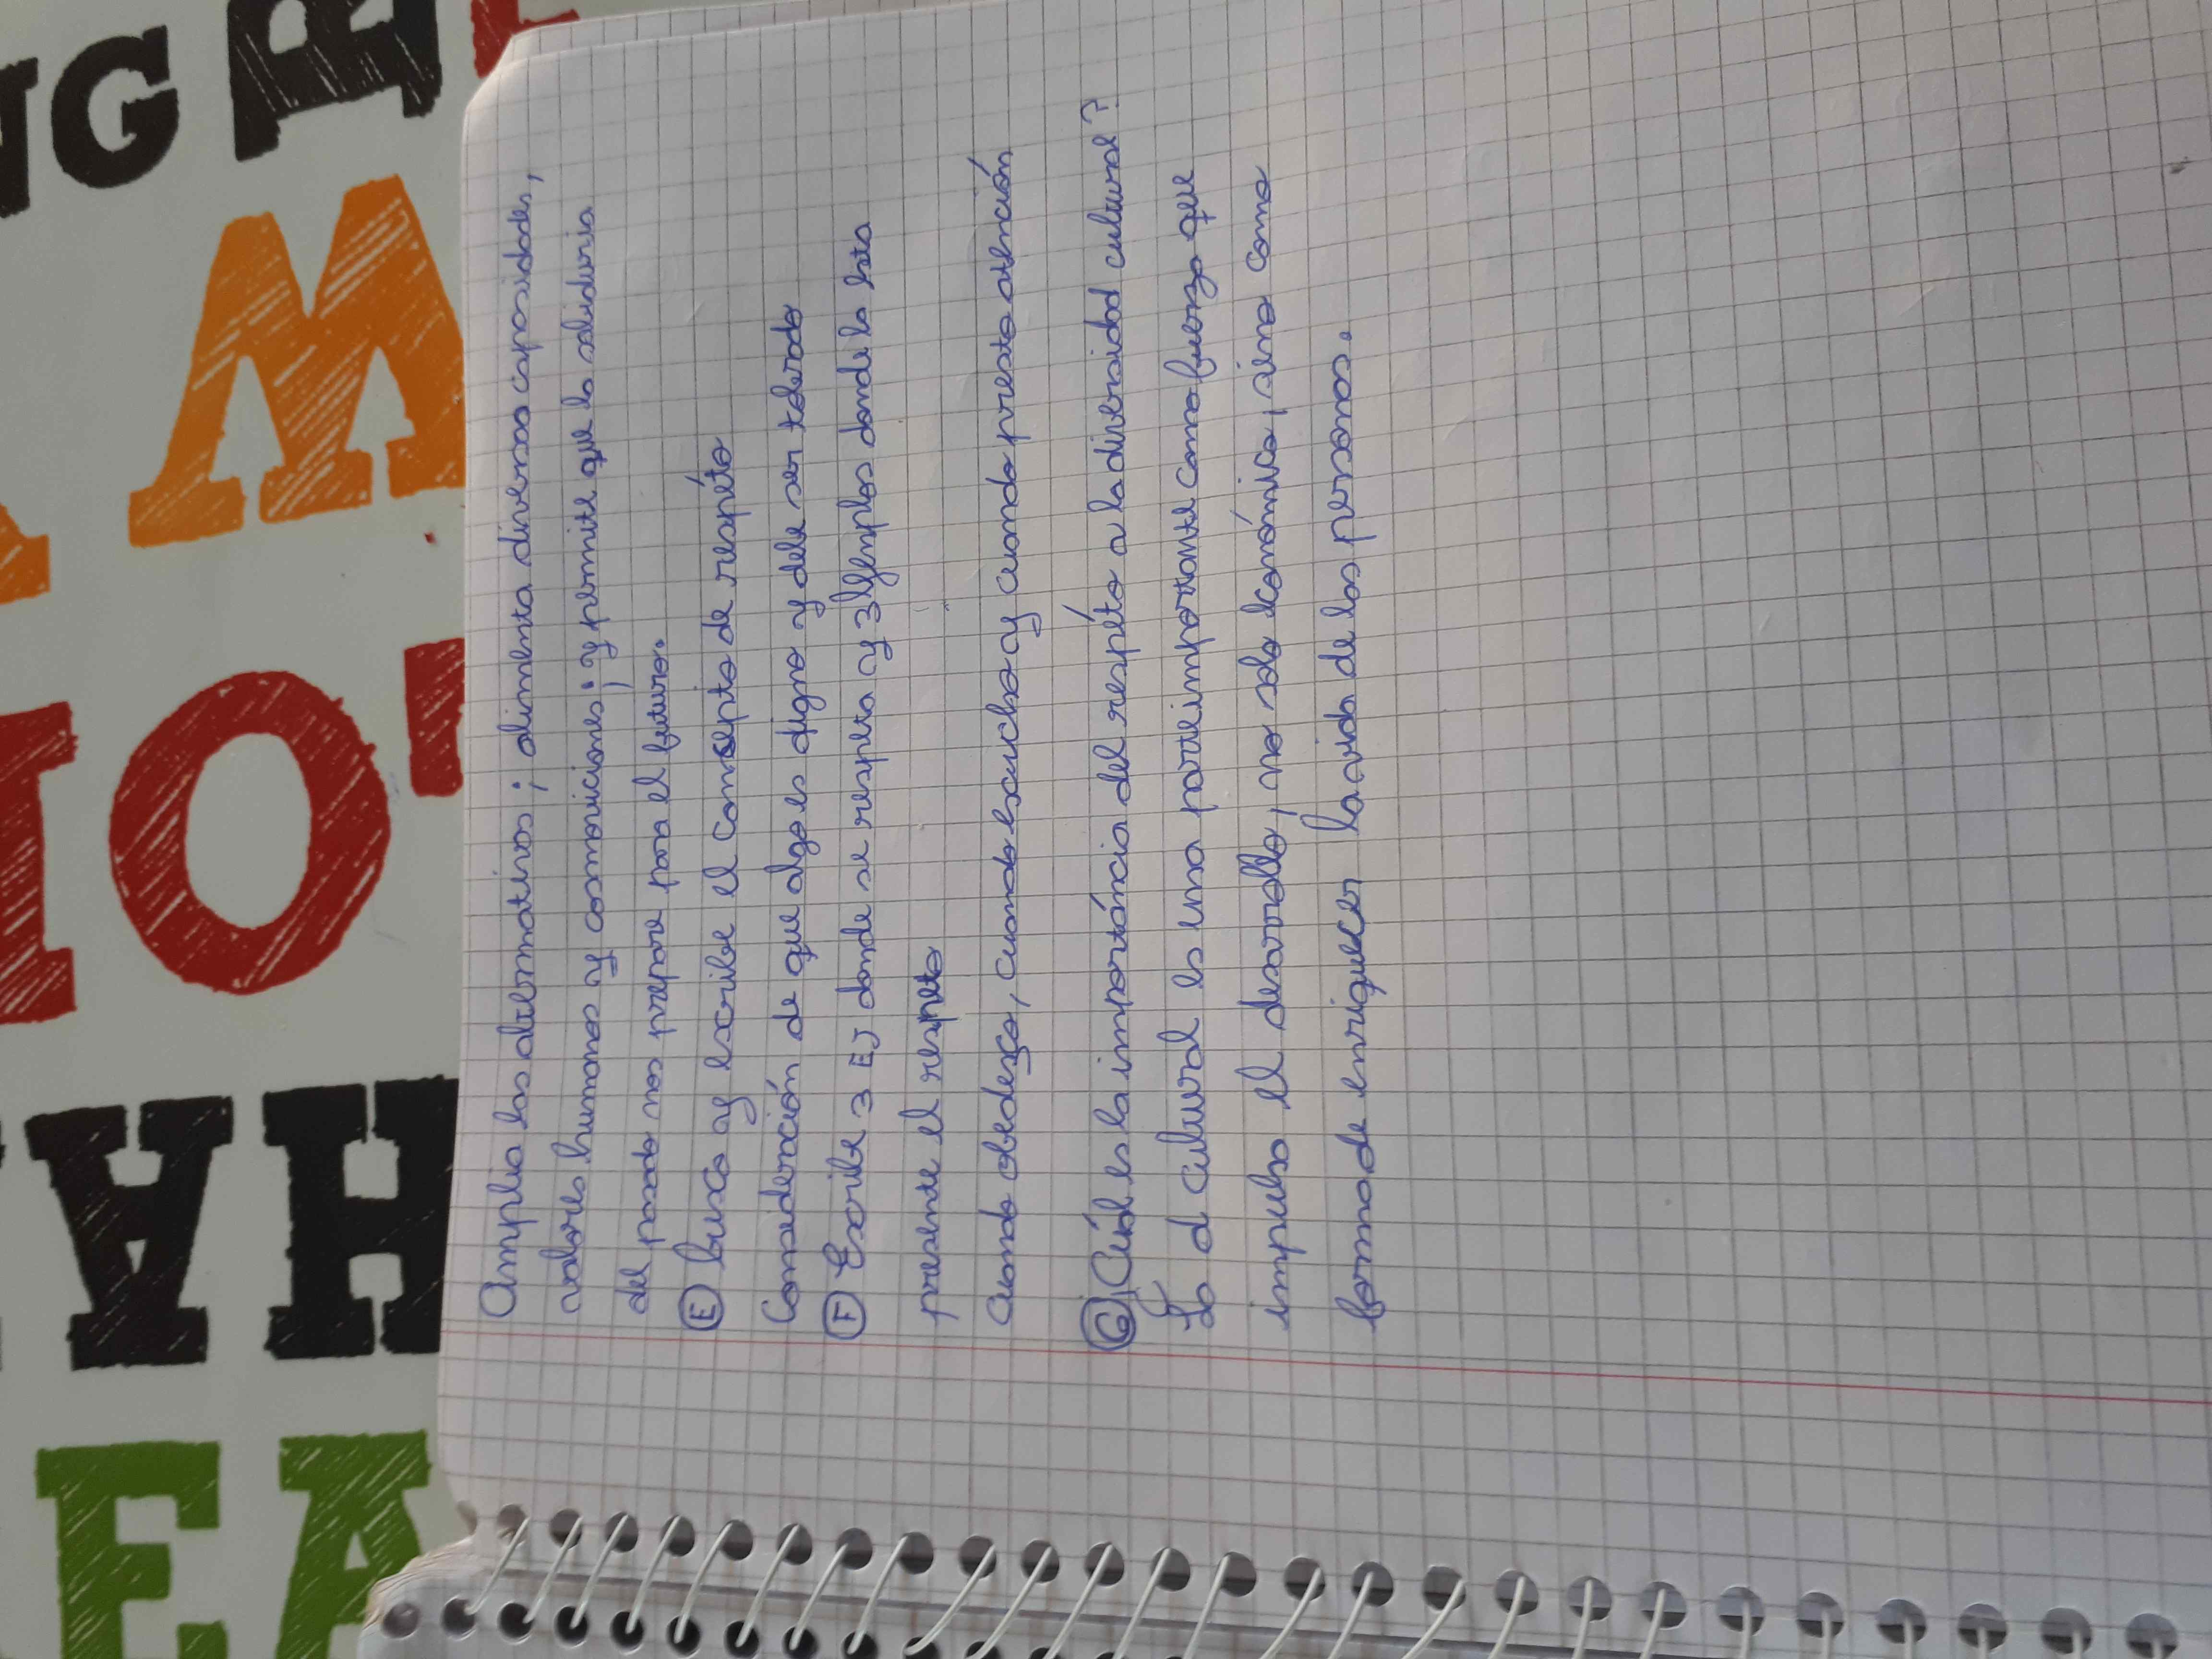 Amplia las alternativas; alimenta diversas caposidades,
valores humanos y cosmoviciones; y permite que la sabiduria
del pasado nos prepare para el futuro.
(E) busca y escribe el consepto de respéto
Consideración de que algo es digno y debe ser tolerado
(F) Escribe 3 EJ donde se respeta y 3 Ejemplos donde la
presente el respeto
Cuando obedesço, cuando escucho y cuando presto atención
(G) ¿Cúal es la importáncia del respéto a la diversidad cultural?
La d cultural es una parte importante como fuerza que
impulsa el desarrollo, no solo económico, sino como
forma de enriquecer la vida de las personas.
NG
W
HA
EA